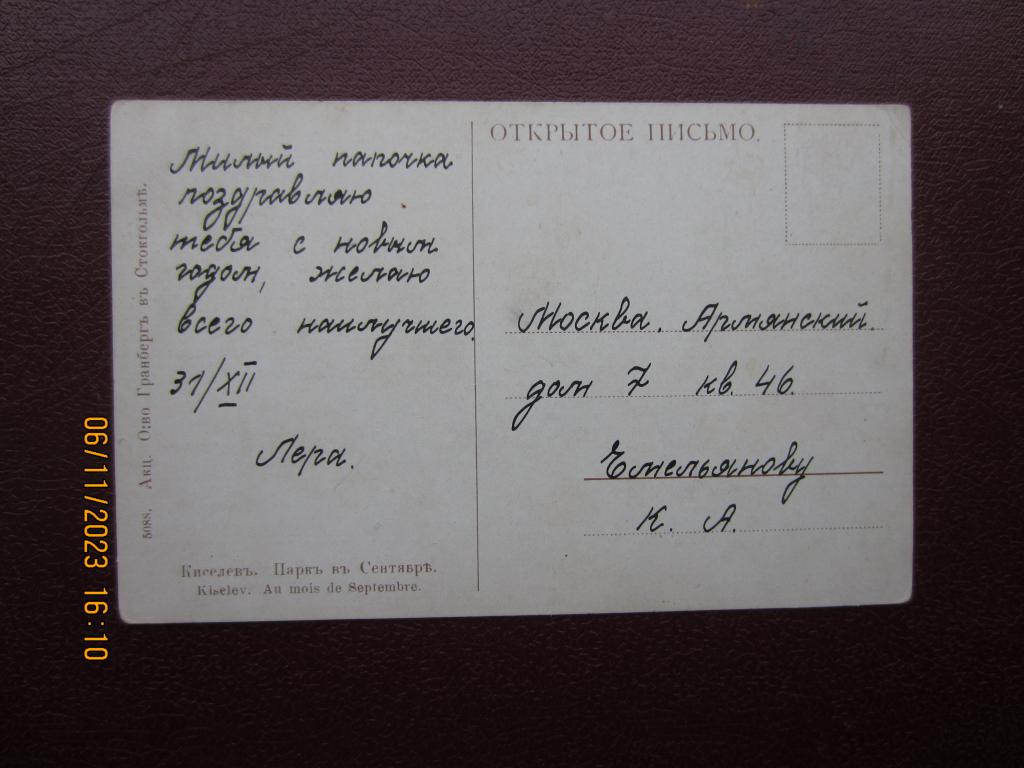 ОТКРЫТОЕ ПИСЬМО.
Милый папочка
поздравляю
тебя с новым
годом, желаю
всего наилучшего.
31/XII
Лера.
Москва. Армянский.
дом 7 кв. 46.
Емельянову
К. А.
Киселевъ. Паркъ въ Сентябрѣ.
Kiselev. Au mois de Septembre.
5088. Акц. О:во Гранбергъ въ Стокгольмѣ.
06/11/2023 16:10